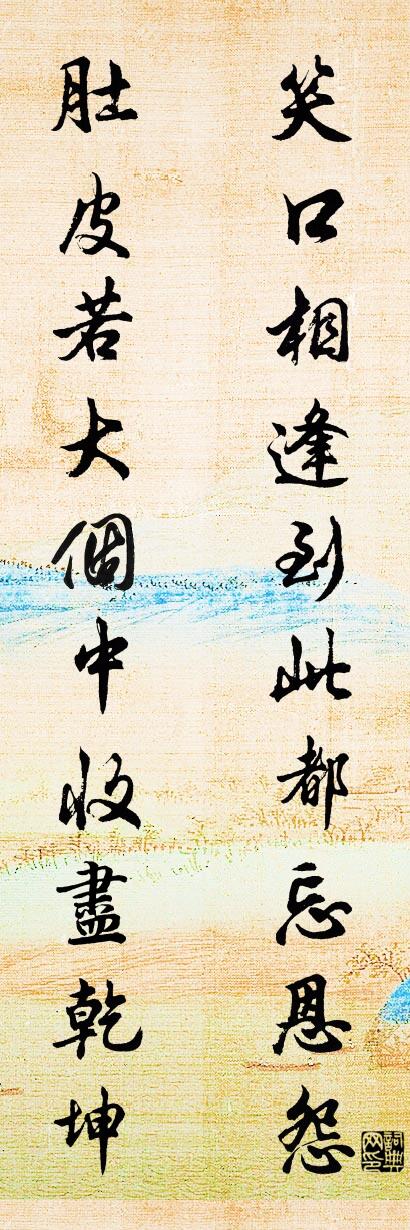 笑口相逢到此都忘恩怨
肚皮若大個中收盡乾坤
詞典网印